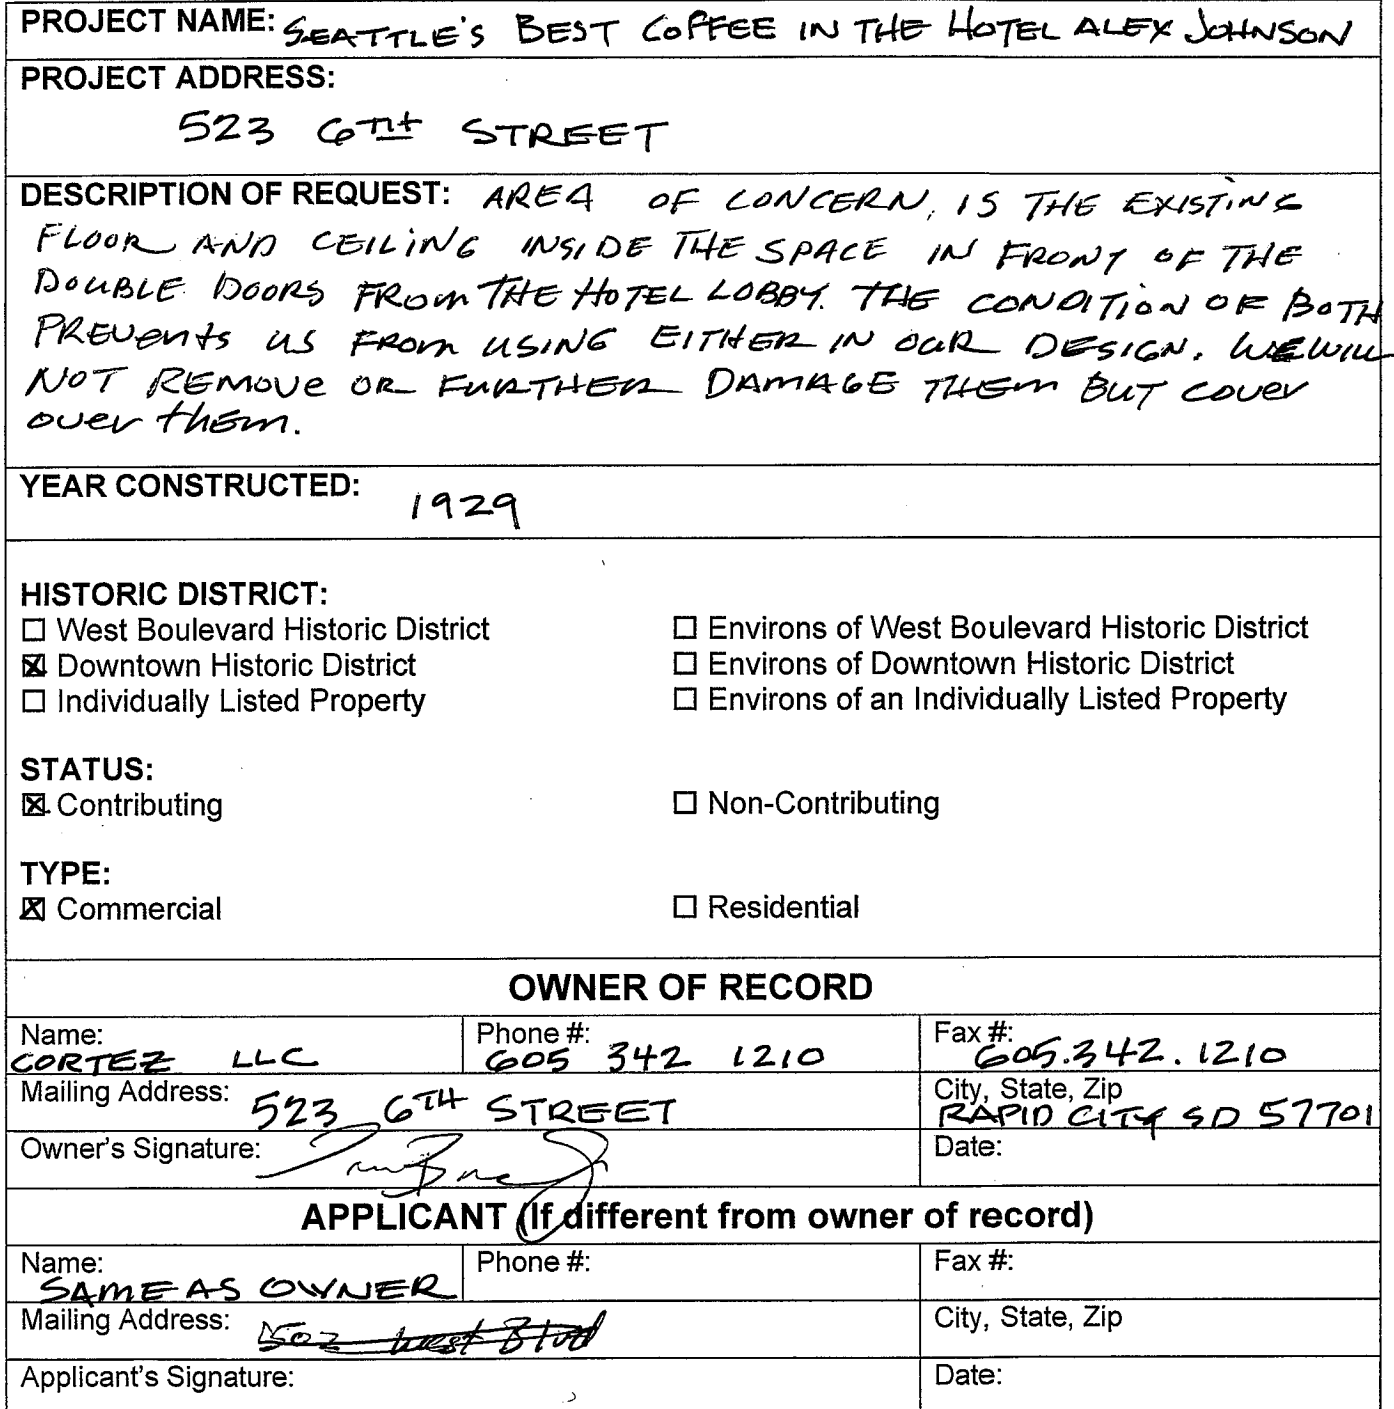 PROJECT NAME: SEATTLE'S BEST COFFEE IN THE HOTEL ALEX JOHNSON
PROJECT ADDRESS:
523 6TH STREET
DESCRIPTION OF REQUEST: AREA OF CONCERN, IS THE EXISTING
FLOOR AND CEILING INSIDE THE SPACE IN FRONT OF THE
DOUBLE DOORS FROM THE HOTEL LOBBY. THE CONDITION OF BOTH
PREVENTS US FROM USING EITHER IN OUR DESIGN. WE WILL
NOT REMOVE OR FURTHER DAMAGE THEM BUT COVER
OVER THEM.
YEAR CONSTRUCTED: 1929
HISTORIC DISTRICT:
☐ West Boulevard Historic District ☐ Environs of West Boulevard Historic District
☒ Downtown Historic District ☐ Environs of Downtown Historic District
☐ Individually Listed Property ☐ Environs of an Individually Listed Property
STATUS:
☒ Contributing ☐ Non-Contributing
TYPE:
☒ Commercial ☐ Residential
OWNER OF RECORD
Name: Phone #: Fax #:
CORTEZ LLC 605 342 1210 605.342.1210
Mailing Address: 523 6TH STREET City, State, Zip
RAPID CITY SD 57701
Owner's Signature: Date:
APPLICANT (If different from owner of record)
Name: Phone #: Fax #:
SAME AS OWNER
Mailing Address: 1502 West Blvd City, State, Zip
Applicant's Signature: Date: